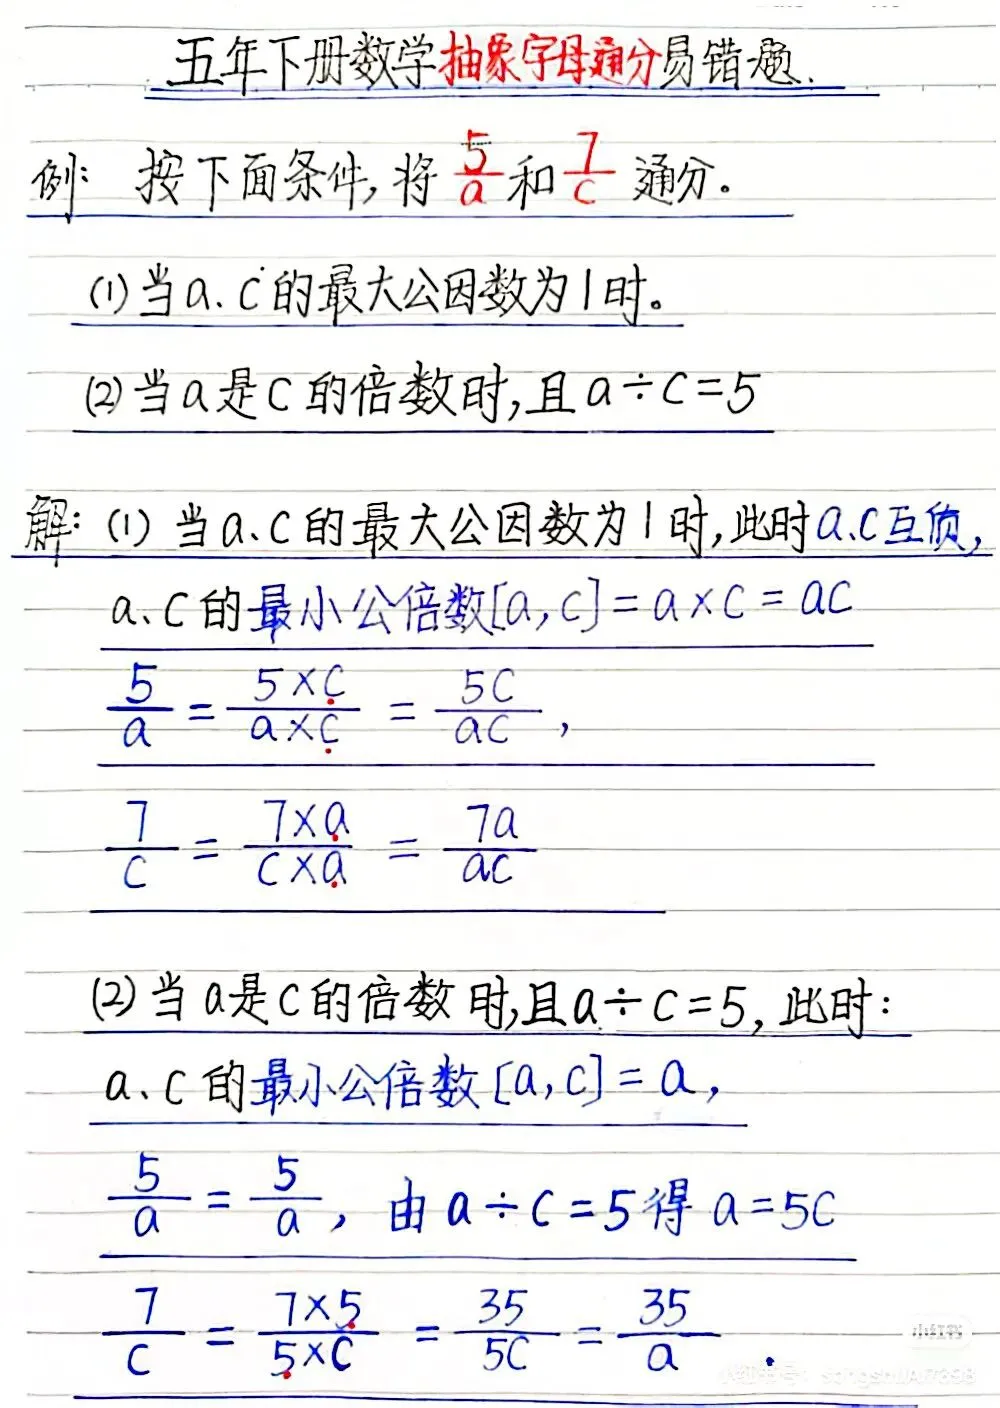 五年下册数学抽象字母通分易错题.
例: 按下面条件,将 5/a 和 7/c 通分。
(1)当a.c的最大公因数为1时。
(2)当a是c的倍数时,且a÷c=5
解:(1)当a、c的最大公因数为1时,此时a.c互质,
a、c的最小公倍数[a,c]=a×c=ac
5/a = 5×c/a×c = 5c/ac ,
7/c = 7×a/c×a = 7a/ac
(2)当a是c的倍数时,且a÷c=5,此时:
a、c的最小公倍数[a,c]=a,
5/a = 5/a , 由a÷c=5得 a=5c
7/c = 7×5/5×c = 35/5c = 35/a .
小红书